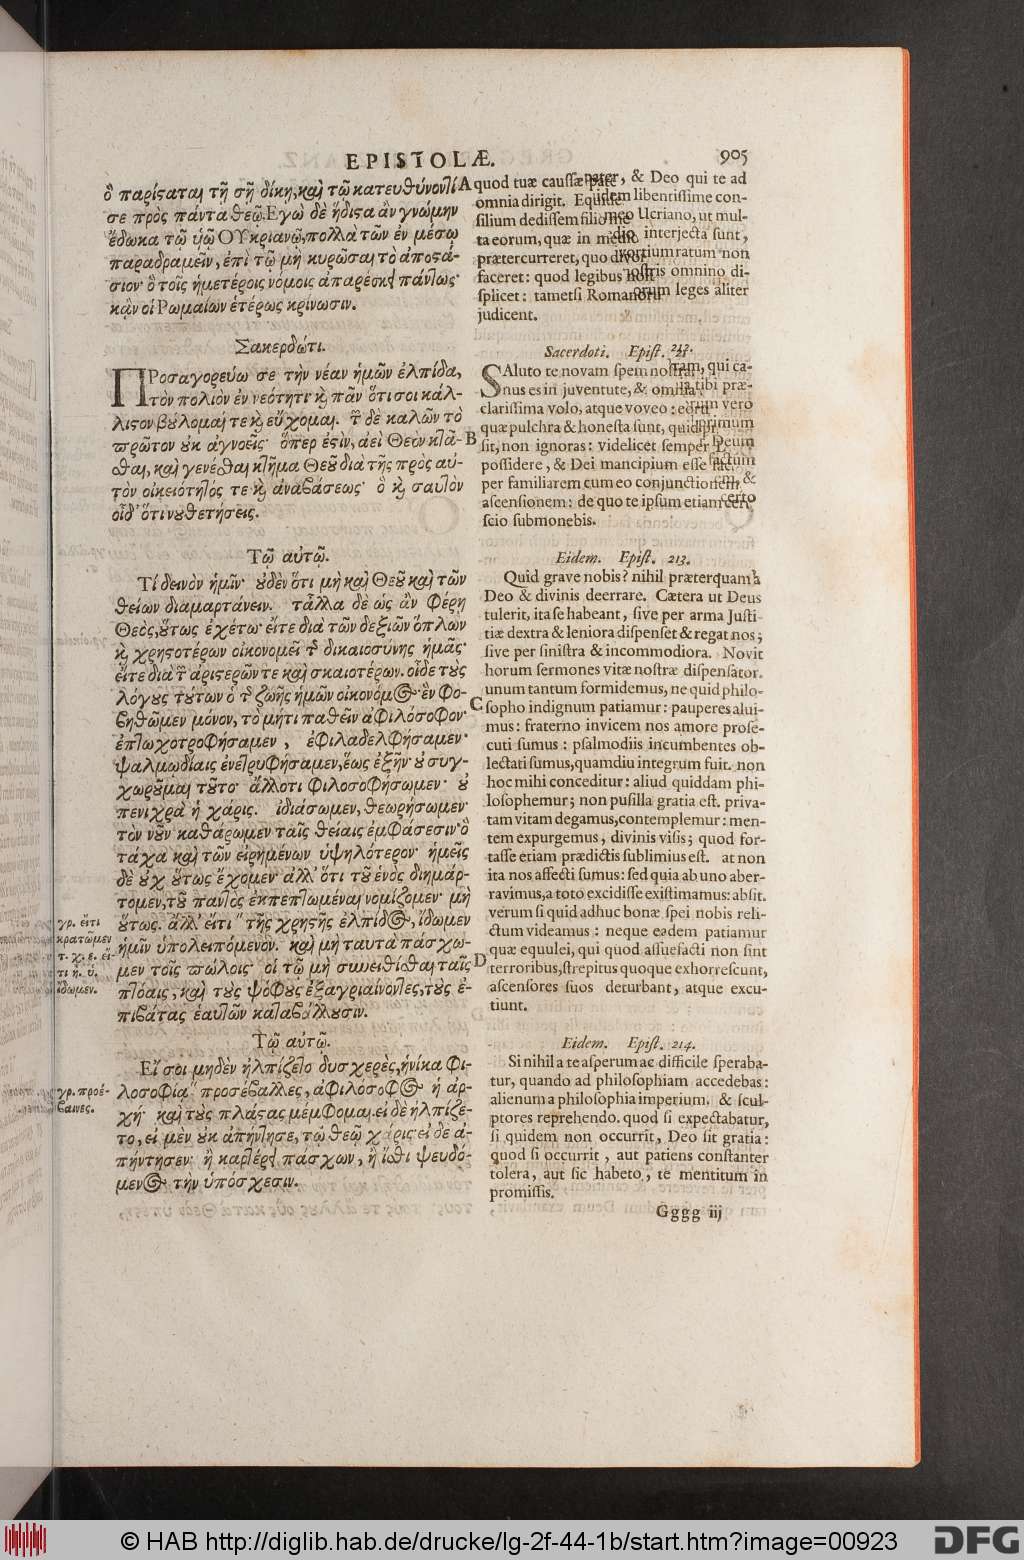 EPISTOLÆ.
905
ὃ παρίσταται τῇ σῇ δίκῃ, καὶ τῷ κατευθύνοντί
σε πρὸς πάντα θεῷ. Εγὼ δὲ ἥδιστα ἂν γνώμην
ἔδωκα τῷ ὑῷ ΟΥκριανῷ, πολλὰ τῶν ἐν μέσῳ
παραδραμεῖν, ἐπὶ τῷ μὴ κυρῶσαι τὸ ἀποστά-
σιον· ὃ τοῖς ἡμετέροις νόμοις ἀπαρέσκει πάντως·
κᾂν οἱ Ρωμαίων ἑτέρως κρίνωσιν.
Σακερδῶτι.
ΠΡοσαγορεύω σε τὴν νέαν ἡμῶν ἐλπίδα,
τὸν πολιὸν ἐν νεότητι· καὶ πᾶν ὅτι σοι κάλ-
λιστον βούλομαι τε καὶ εὔχομαι. τῶν δὲ καλῶν τὸ
πρῶτον οὐκ ἀγνοεῖς· ὅπερ ἐστὶν, ἀεὶ Θεὸν κτᾶ-
σθαι, καὶ γενέσθαι κτῆμα Θεοῦ διὰ τῆς πρὸς αὐ-
τὸν οἰκειότητός τε καὶ ἀναβάσεως· ὃ καὶ σαυτὸν
οἶδ' ὅτι νουθετήσεις.
Τῷ αὐτῷ.
Τί δεινὸν ἡμῖν· οὐδὲν ὅτι μὴ καὶ Θεοῦ καὶ τῶν
θείων διαμαρτάνειν. τἆλλα δὲ ὡς ἂν φέρῃ
Θεὸς, οὕτως ἐχέτω· εἴτε διὰ τῶν δεξιῶν ὅπλων
καὶ χρηστοτέρων οἰκονομεῖ τῆς δικαιοσύνης ἡμᾶς·
εἴτε διὰ τῶν ἀριστερῶν τε καὶ σκαιοτέρων. οἶδε τοὺς
λόγους τούτων ὁ τῆς ζωῆς ἡμῶν οἰκονόμος· ἓν φο-
βηθῶμεν μόνον, τὸ μήτι παθεῖν ἀφιλόσοφον·
ἐπτωχοτροφήσαμεν, ἐφιλαδελφήσαμεν·
ψαλμῳδίαις ἐνετρυφήσαμεν, ἕως ἐξῆν· οὐ συγ-
χωροῦμαι τοῦτο· ἄλλοτι φιλοσοφήσωμεν· οὐ
πενιχρὰ ἡ χάρις. ἰδιάσωμεν, θεωρήσωμεν·
τὸν νοῦν καθάρωμεν ταῖς θείαις ἐμφάσεσιν· ὃ
τάχα καὶ τῶν εἰρημένων ὑψηλότερον· ἡμεῖς
δὲ οὐχ οὕτως ἔχομεν· ἀλλ' ὅτι τοῦ ἑνὸς διημάρ-
τομεν, τοῦ παντὸς ἐκπεπτωμέναι νομίζομεν· μὴ
οὕτως. ἀλλ' εἴτι τῆς χρηστῆς ἐλπίδος, ἴδωμεν
ἡμῖν ὑπολειπόμενον. καὶ μὴ ταυτὰ πάσχω-
μεν τοῖς πώλοις· οἱ τῷ μὴ συνειθίσθαι ταῖς
πτόαις, καὶ τοὺς ψόφους ἐξαγριαίνοντες, τοὺς ἐ-
πιβάτας ἑαυτῶν καταβάλλουσιν.
γρ. εἴτι
κρατῶμεν
τ. χ. ε. εἴ-
τι ἡ. ὑ.
ἴδωμεν.
Τῷ αὐτῷ.
Εἴ σοι μηδὲν ἠλπίζετο δυσχερὲς, ἡνίκα φι-
λοσοφία προσέβαλλες, ἀφιλόσοφος ἡ ἀρ-
χή· καὶ τοὺς πλάστας μέμφομαι. εἰ δὲ ἠλπίζε-
το, εἰ μὲν οὐκ ἀπήντησε, τῷ θεῷ χάρις· εἰ δὲ ἀ-
πήντησεν· ἢ καρτέρει πάσχων, ἢ ἴσθι ψευδό-
μενος τὴν ὑπόσχεσιν.
γρ. προέ-
βαινες.
A quod tuæ caussæ pater, & Deo qui te ad
omnia dirigit. Equidem libentissime con-
silium dedissem filio meo Ucriano, ut mul-
ta eorum, quæ in medio interjecta sunt,
prætercurreret, quo divortium ratum non
faceret: quod legibus nostris omnino di-
splicet: tametsi Romanorum leges aliter
judicent.
Sacerdoti. Epist. 212.
SAluto te novam spem nostram, qui ca-
nus es in juventute, & omnia tibi præ-
clarissima volo, atque voveo: eorum vero
quæ pulchra & honesta sunt, quid primum
B sit, non ignoras: videlicet semper Deum
possidere, & Dei mancipium esse factum
per familiarem cum eo conjunctionem, &
ascensionem: de quo te ipsum etiam certo
scio submonebis.
Eidem. Epist. 213.
Quid grave nobis? nihil præterquam à
Deo & divinis deerrare. Cætera ut Deus
tulerit, ita se habeant, sive per arma Justi-
tiæ dextra & leniora dispenset & regat nos;
sive per sinistra & incommodiora. Novit
horum sermones vitæ nostræ dispensator.
unum tantum formidemus, ne quid philo-
C sopho indignum patiamur: pauperes alui-
mus: fraterno invicem nos amore prose-
cuti sumus: psalmodiis incumbentes ob-
lectati sumus, quamdiu integrum fuit. non
hoc mihi conceditur: aliud quiddam phi-
losophemur; non pusilla gratia est. priva-
tam vitam degamus, contemplemur: men-
tem expurgemus, divinis visis; quod for-
tasse etiam prædictis sublimius est. at non
ita nos affecti sumus: sed quia ab uno aber-
ravimus, a toto excidisse existimamus: absit.
verum si quid adhuc bonæ spei nobis reli-
ctum videamus: neque eadem patiamur
quæ equulei, qui quod assuefacti non sint
D terroribus, strepitus quoque exhorrescunt,
ascensores suos deturbant, atque excu-
tiunt.
Eidem. Epist. 214.
Si nihil a te asperum ac difficile speraba-
tur, quando ad philosophiam accedebas:
alienum a philosophia imperium. & scul-
ptores reprehendo. quod si expectabatur,
si quidem non occurrit, Deo sit gratia:
quod si occurrit, aut patiens constanter
tolera, aut sic habeto, te mentitum in
promissis.
Gggg iij
© HAB http://diglib.hab.de/drucke/lg-2f-44-1b/start.htm?image=00923
DFG